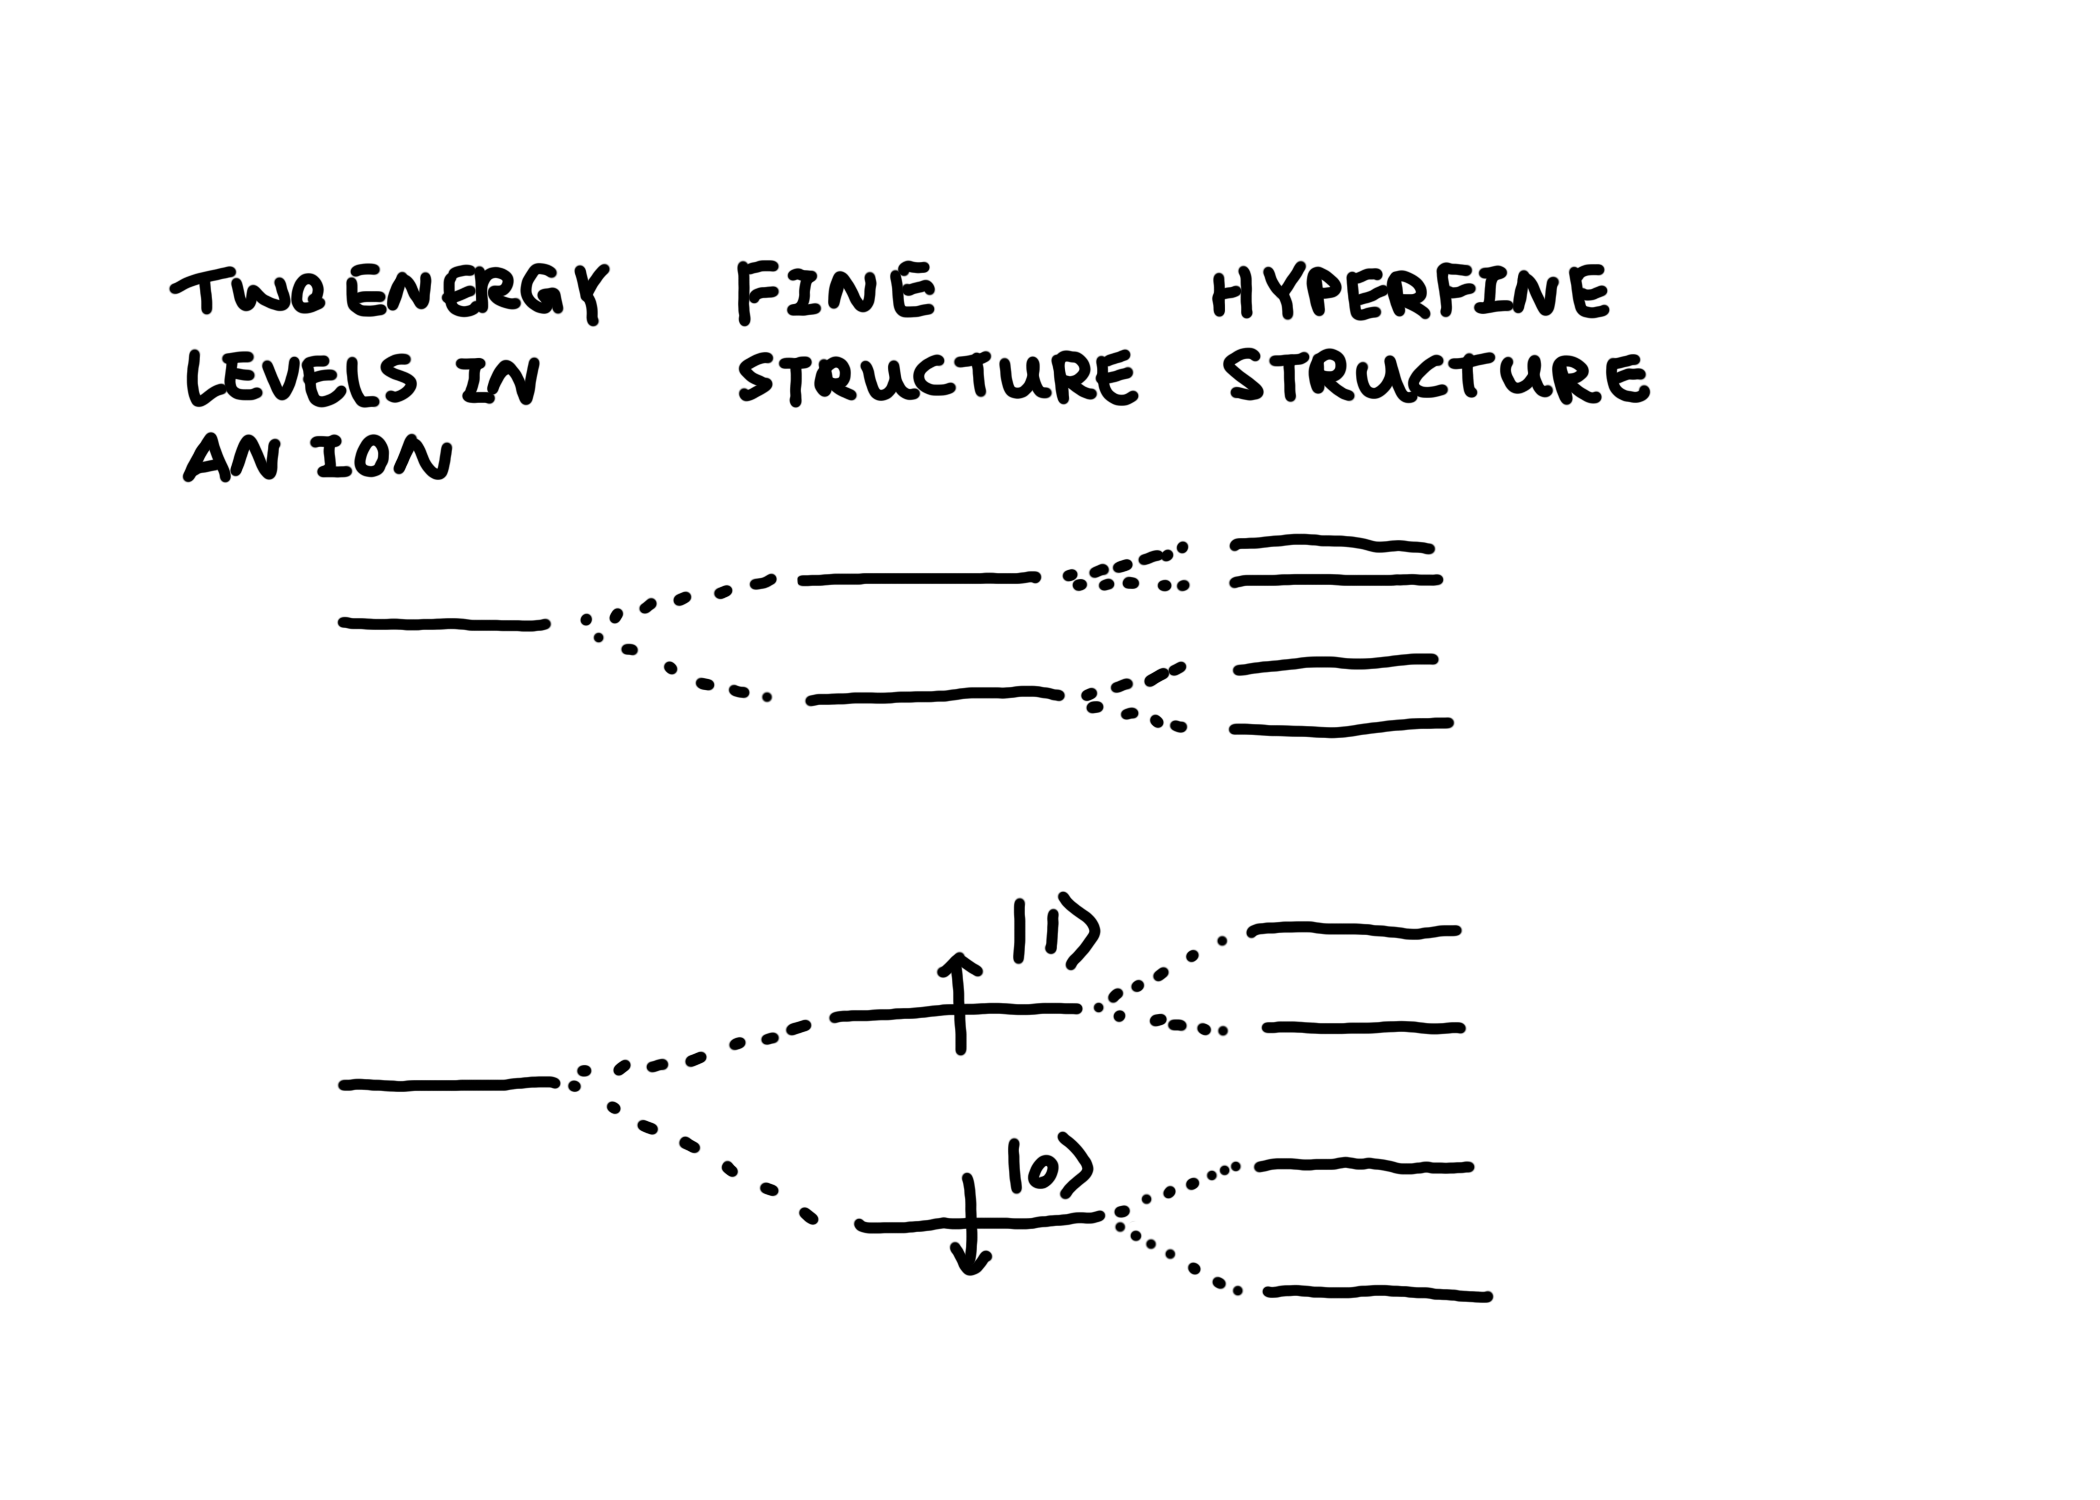 TWO ENERGY
LEVELS IN
AN ION
FINE
STRUCTURE
HYPERFINE
STRUCTURE
|1⟩
|0⟩